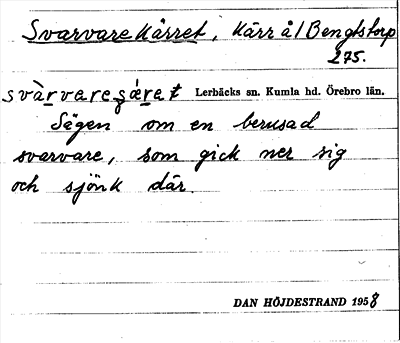 Svarvare Kärret, Kärr å/Bengtstorp
275.
svàrvaregæ̀ret Lerbäcks sn. Kumla hd. Örebro län.
Sägen om en berusad
svarvare, som gick ner sig
och sjönk där.
DAN HÖJDESTRAND 1958